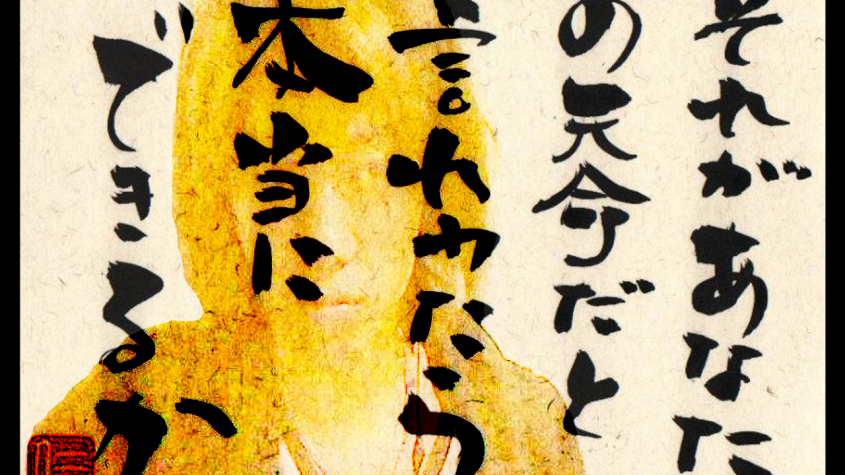 それがあなた
の天命だと
言われたら
本当に
できるか